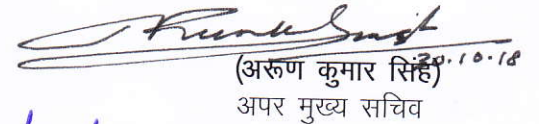 20.10.18
(अरूण कुमार सिंह)
अपर मुख्य सचिव